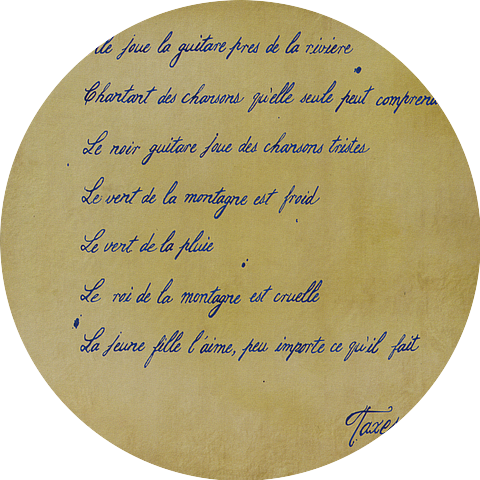 joue la guitare pres de la riviere
Chantant des chansons qu'elle seule peut
Le noir guitare joue des chansons tristes
Le vent de la montagne est froid
Le vent de la pluie
Le roi de la montagne est cruelle
La jeune fille l'aime, peu importe ce qu'il fait